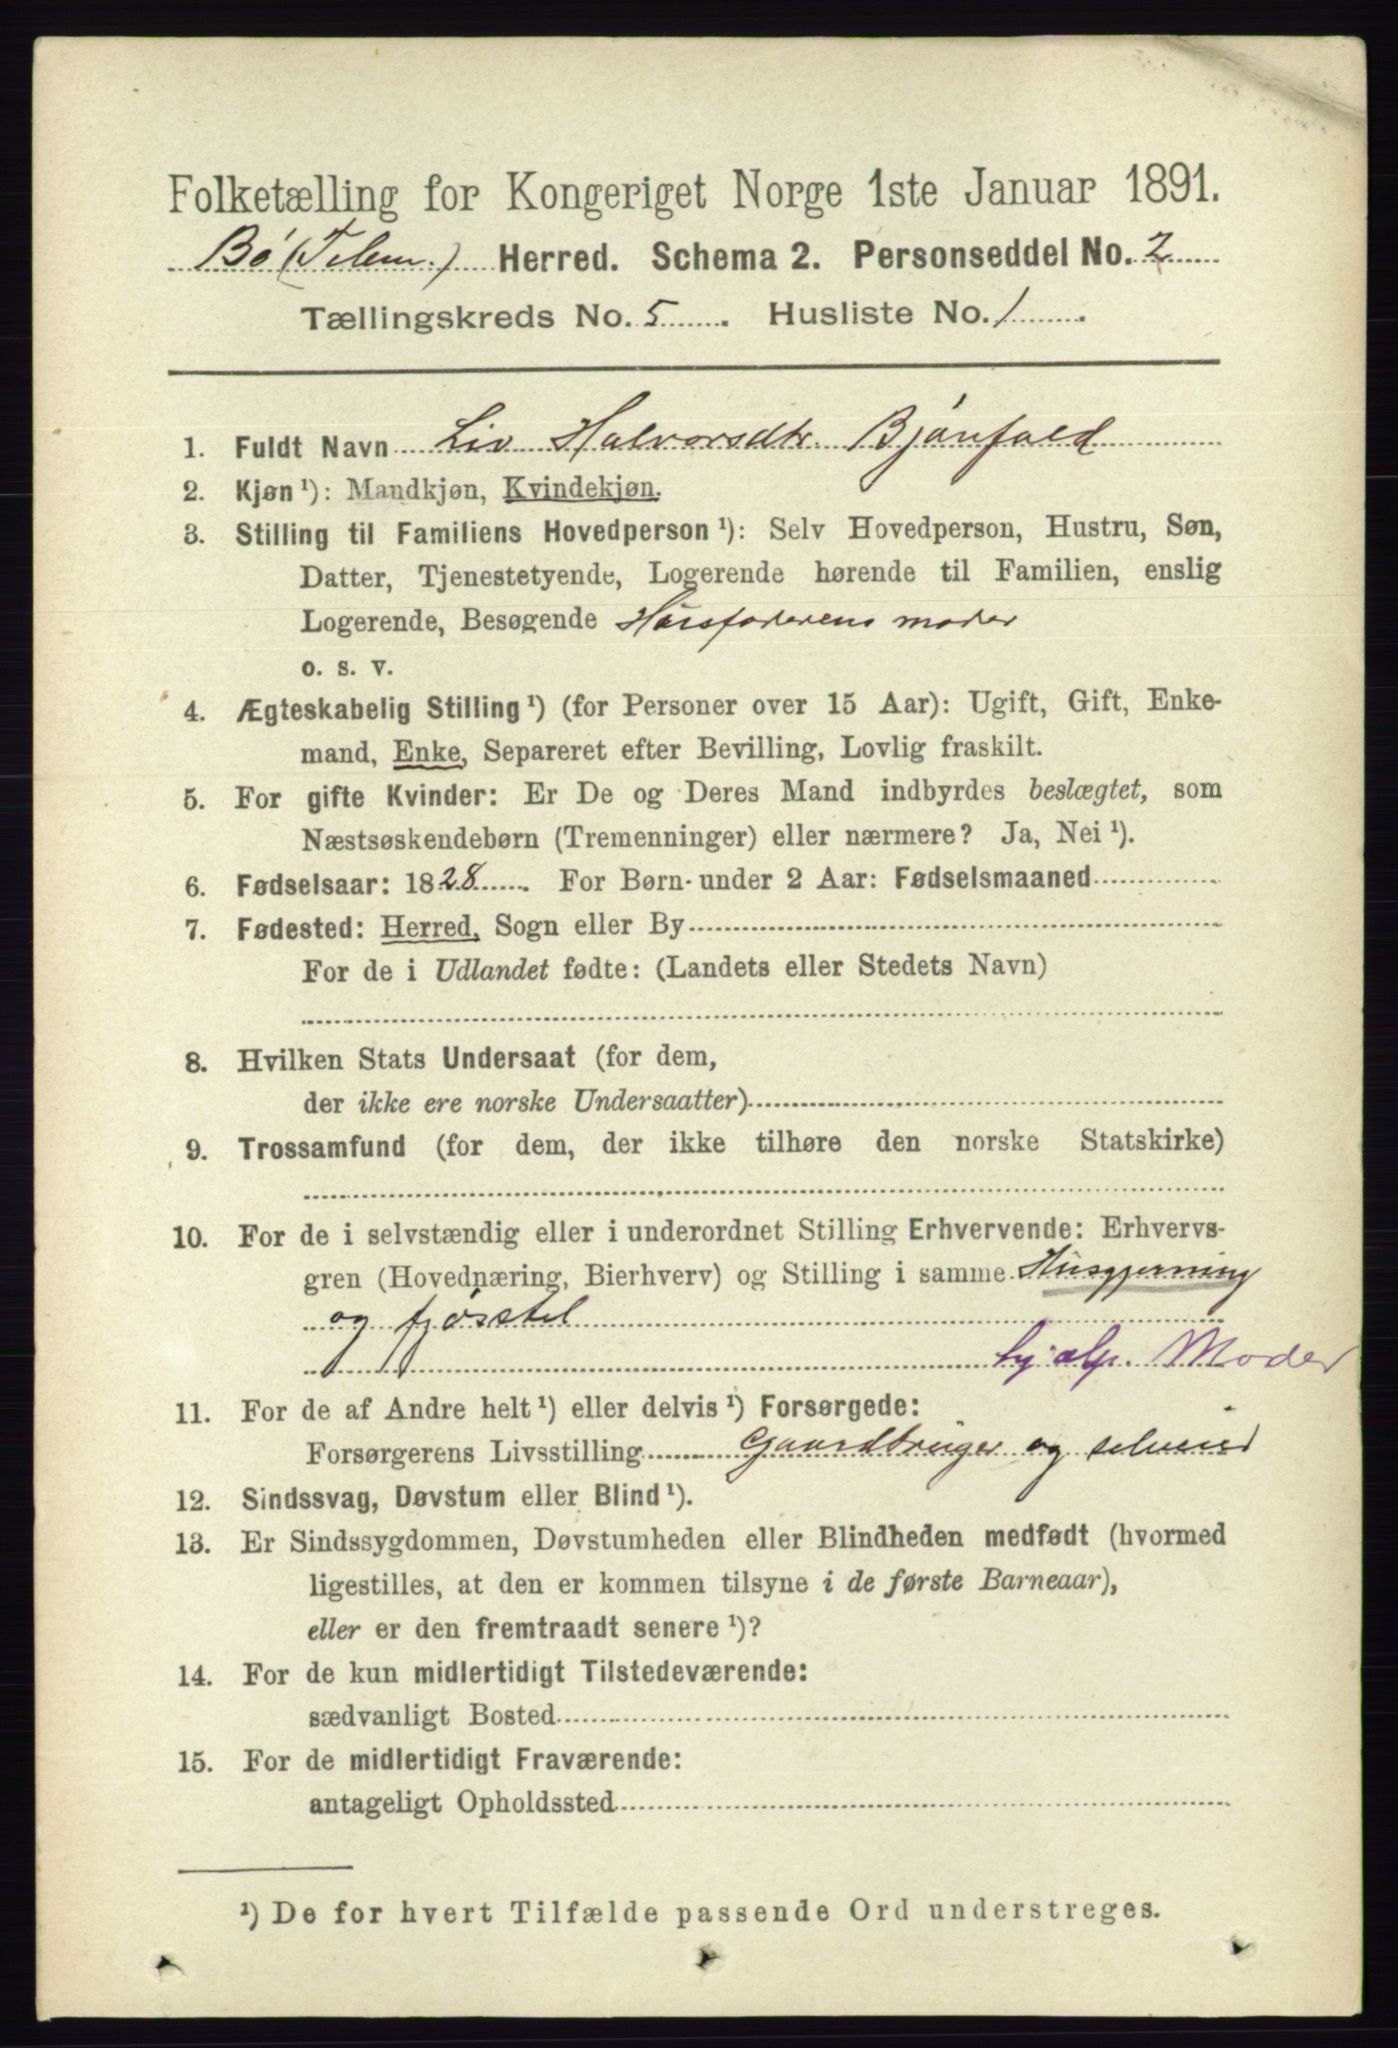 Folketælling for Kongeriget Norge 1ste Januar 1891.
Bø (Telem.) Herred. Schema 2. Personseddel No. 2
Tællingskreds No. 5. Husliste No. 1.
1. Fuldt Navn Liv Halvorsdtr. Bjónfald
2. Kjøn ¹): Mandkjøn, Kvindekjøn.
3. Stilling til Familiens Hovedperson ¹): Selv Hovedperson, Hustru, Søn,
Datter, Tjenestetyende, Logerende hørende til Familien, enslig
Logerende, Besøgende Husfaderens moder
o. s. v.
4. Ægteskabelig Stilling ¹) (for Personer over 15 Aar): Ugift, Gift, Enke-
mand, Enke, Separeret efter Bevilling, Lovlig fraskilt.
5. For gifte Kvinder: Er De og Deres Mand indbyrdes beslægtet, som
Næstsøskendebørn (Tremenninger) eller nærmere? Ja, Nei ¹).
6. Fødselsaar: 1828. For Børn under 2 Aar: Fødselsmaaned
7. Fødested: Herred, Sogn eller By
For de i Udlandet fødte: (Landets eller Stedets Navn)
8. Hvilken Stats Undersaat (for dem,
der ikke ere norske Undersaatter)
9. Trossamfund (for dem, der ikke tilhøre den norske Statskirke)
10. For de i selvstændig eller i underordnet Stilling Erhvervende: Erhvervs-
gren (Hovednæring, Bierhverv) og Stilling i samme Husgjerning
og fjósstel
hjælp. Moder
11. For de af Andre helt ¹) eller delvis ¹) Forsørgede:
Forsørgerens Livsstilling Gaardbruger og selveier
12. Sindssvag, Døvstum eller Blind ¹).
13. Er Sindssygdommen, Døvstumheden eller Blindheden medfødt (hvormed
ligestilles, at den er kommen tilsyne i de første Barneaar),
eller er den fremtraadt senere ¹)?
14. For de kun midlertidigt Tilstedeværende:
sædvanligt Bosted
15. For de midlertidigt Fraværende:
antageligt Opholdssted
¹) De for hvert Tilfælde passende Ord understreges.